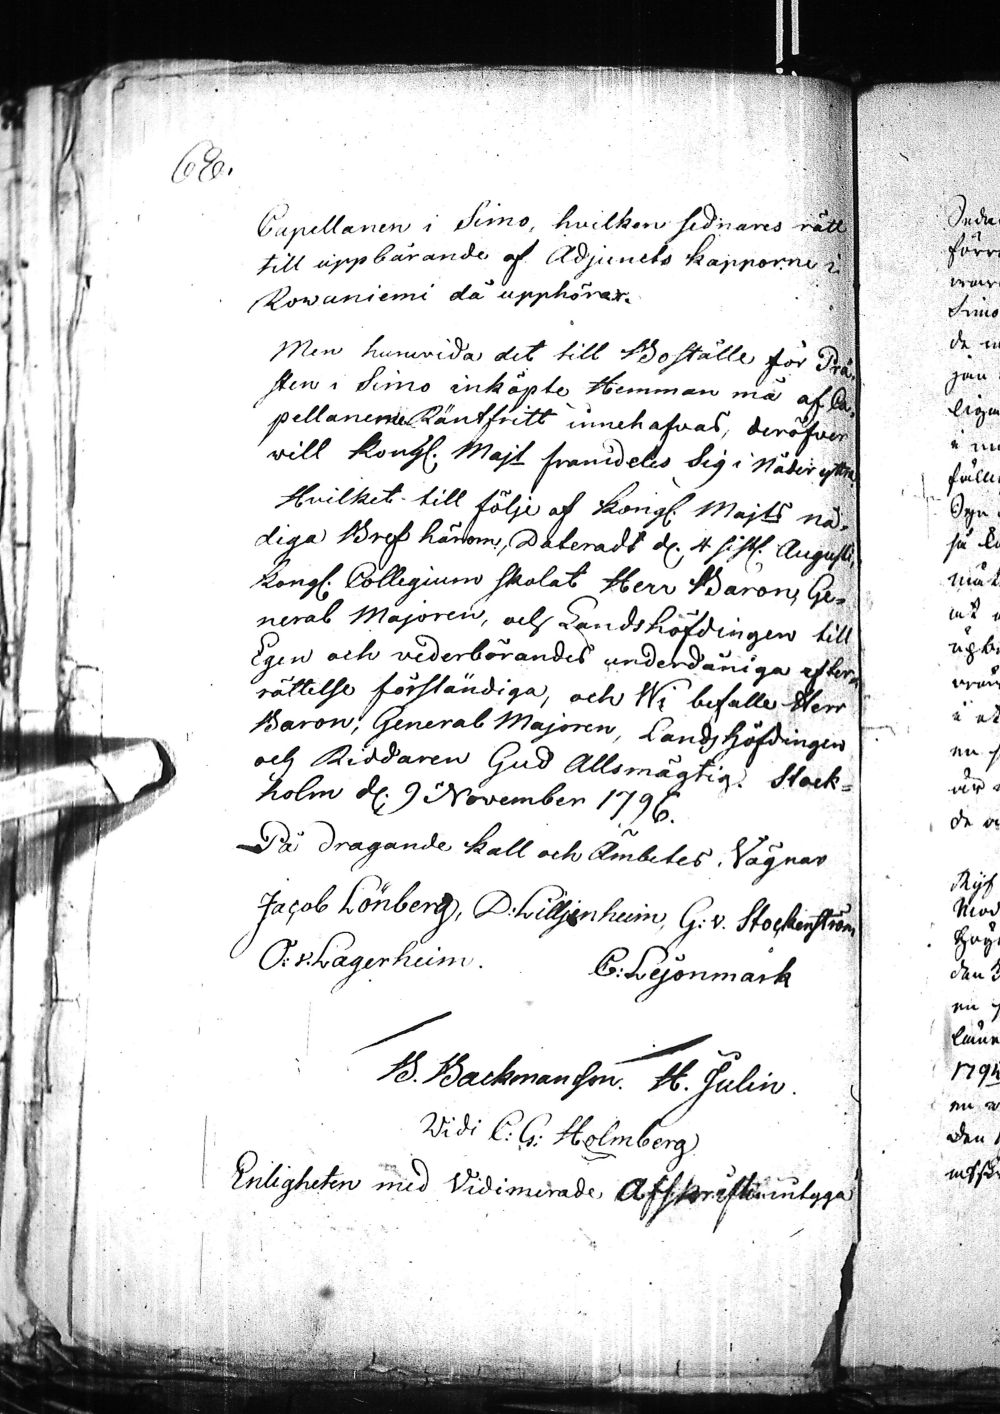 68.
Capellanen i Simo, hvilken sednares rätt
till uppbärande af Adjuncts kapporne i
Rowaniemi då upphörer.
Men huruvida det till Boställe för Prä-
sten i Simo inköpte Hemman må af Ca-
pellanerne Räntfritt innehafvas, deröfver
will Kongl. Majt framdeles Sig i Nåder yttra.
Hvilket till följe af Kongl. Majts nå-
diga Bref härom, Dateradt d. 4 sistl. Augusti,
Kongl. Collegium skolat Herr Baron, Ge-
neral Majoren, och Landshöfdingen till
Egen och vederbörandes underdåniga efter-
rättelse förständiga, och Wi befalle Herr
Baron, General Majoren, Landshöfdingen
och Riddaren Gud Allsmägtig. Stock-
holm d. 9 November 1796.
På Dragande kall och Ämbetes Vägnar
Jacob Lönberg, D: Lilljenheim, G: v. Stockenström
O: v. Lagerheim. C: Lejonmark
B. Backmanson. H. Julin.
Vidi C: G: Holmberg
Enligheten med Vidimerade Afskriften intyga